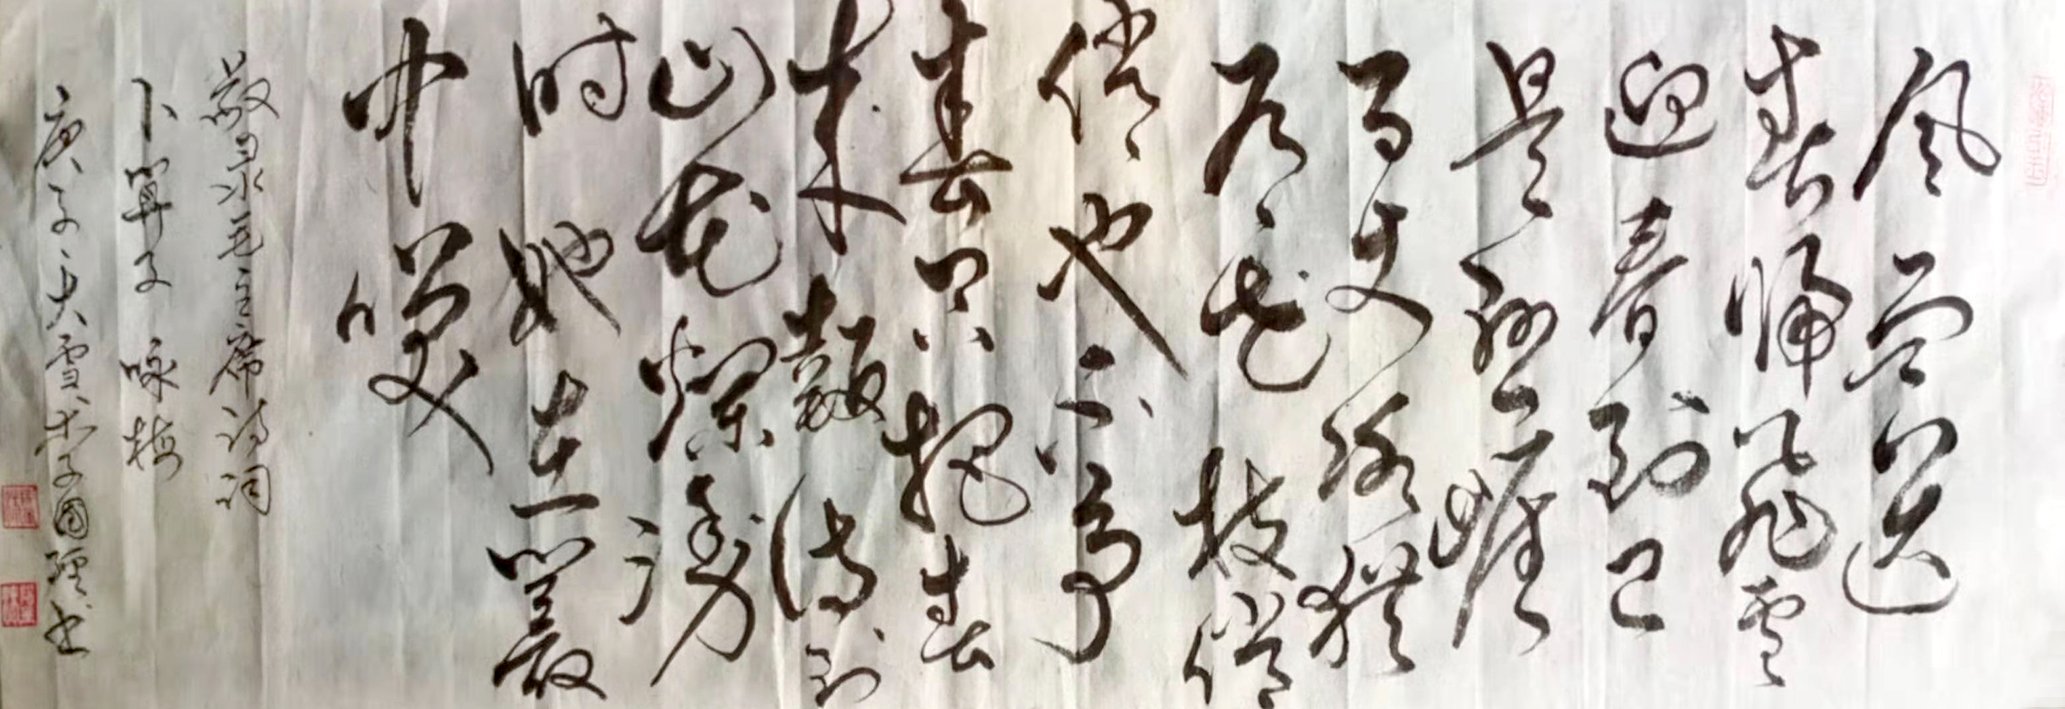 风雨送
春归飞雪
迎春到已
是悬崖
百丈冰犹
有花枝俏
俏也不争
春只把春
来报待到
山花烂漫
时她在丛
中笑
敬录毛主席诗词
卜算子咏梅
庚子大雪李国强书